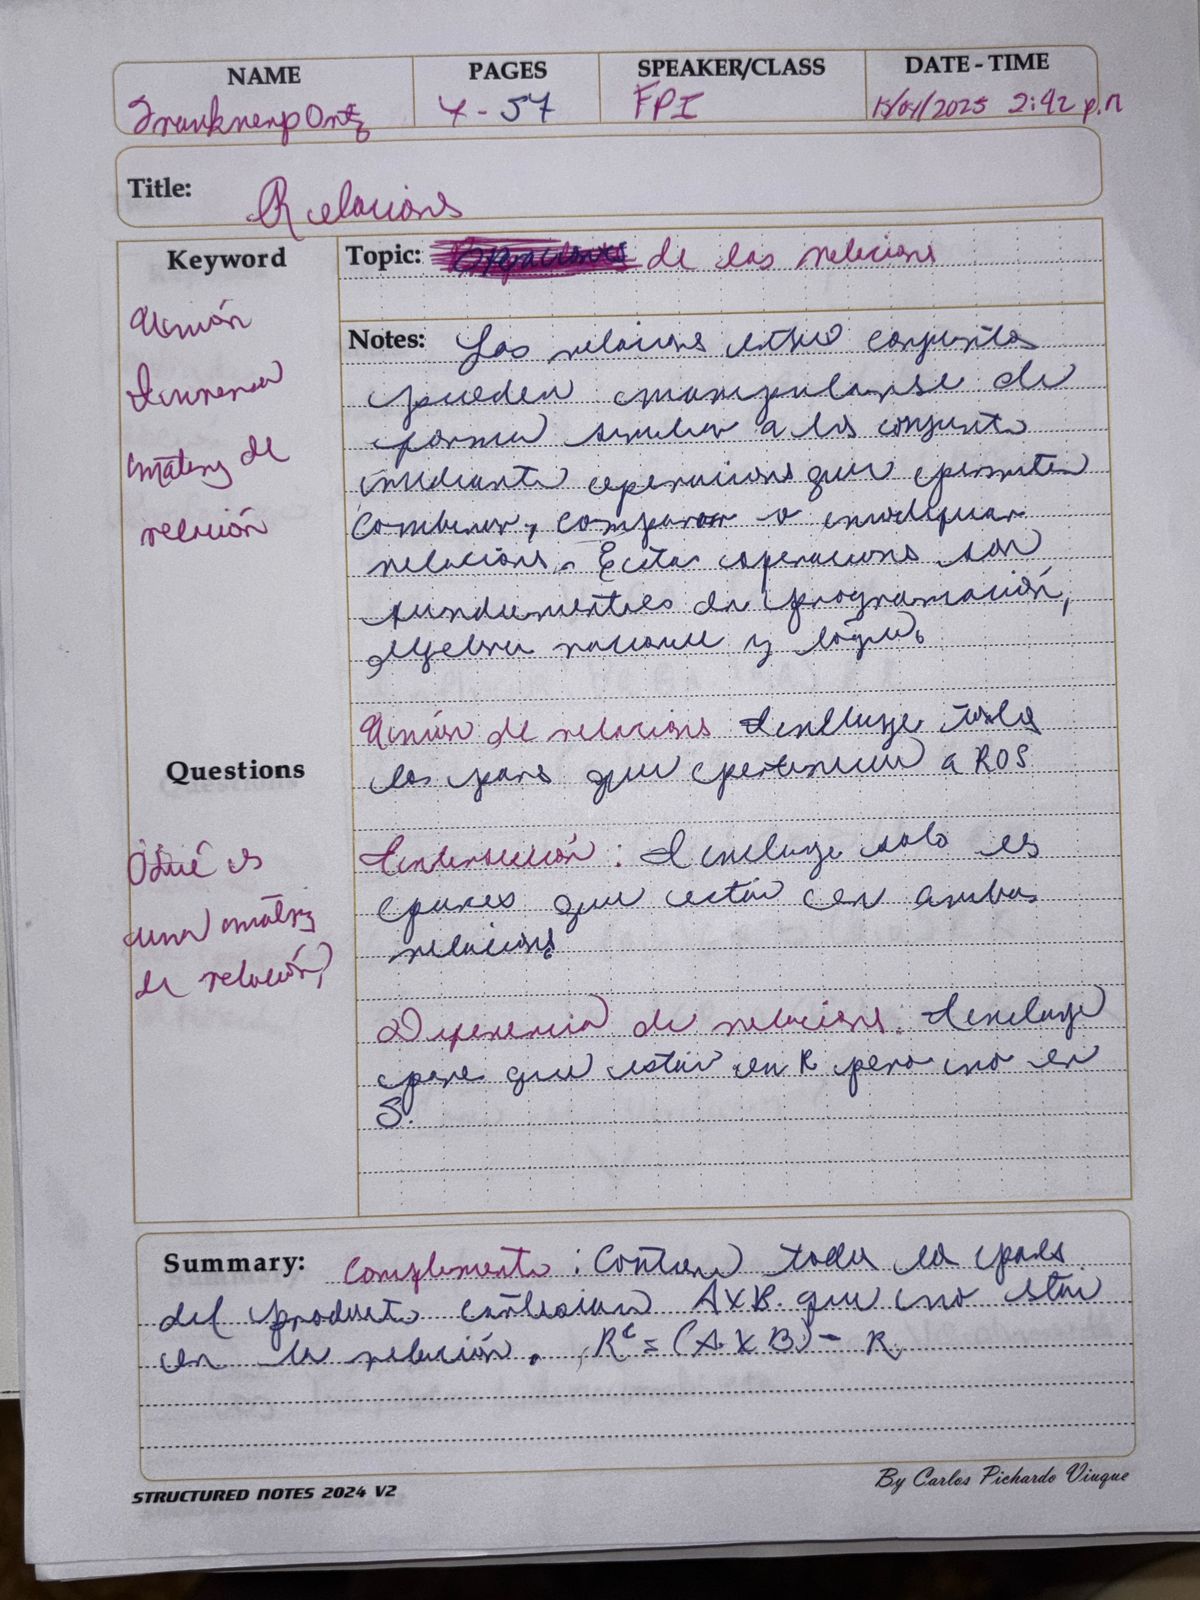 NAME
PAGES
SPEAKER/CLASS
DATE - TIME
4-57
FPI
15/04/2025 2:42 p.m
Title: Relacions
Keyword
Unión
matriz de
relación
Topic: Operaciones de las relacions
Notes: Las relacions entre conjuntos
pueden manipularse de
forma similar a los conjunto
mediante operacions que permiten
Combinar, comparar o modificar
relacions. Estas operacions son
fundamentales en programación,
algebra y lógica.
Unión de relacions Incluye todos
los pares que pertenecen a ROS
Questions
Intersección: Incluye solo es
pares que están en ambas
relacions
Qué es
una matriz
de relación?
Diferencia de relacions. Incluye
pare que están en R pero no en
S.
Summary: Complemento: Contiene todos los pares
del producto cartesiano AxB. que no están
en la relación. R^c = (A X B) - R
STRUCTURED NOTES 2024 V2
By Carlos Pichardo Viuque